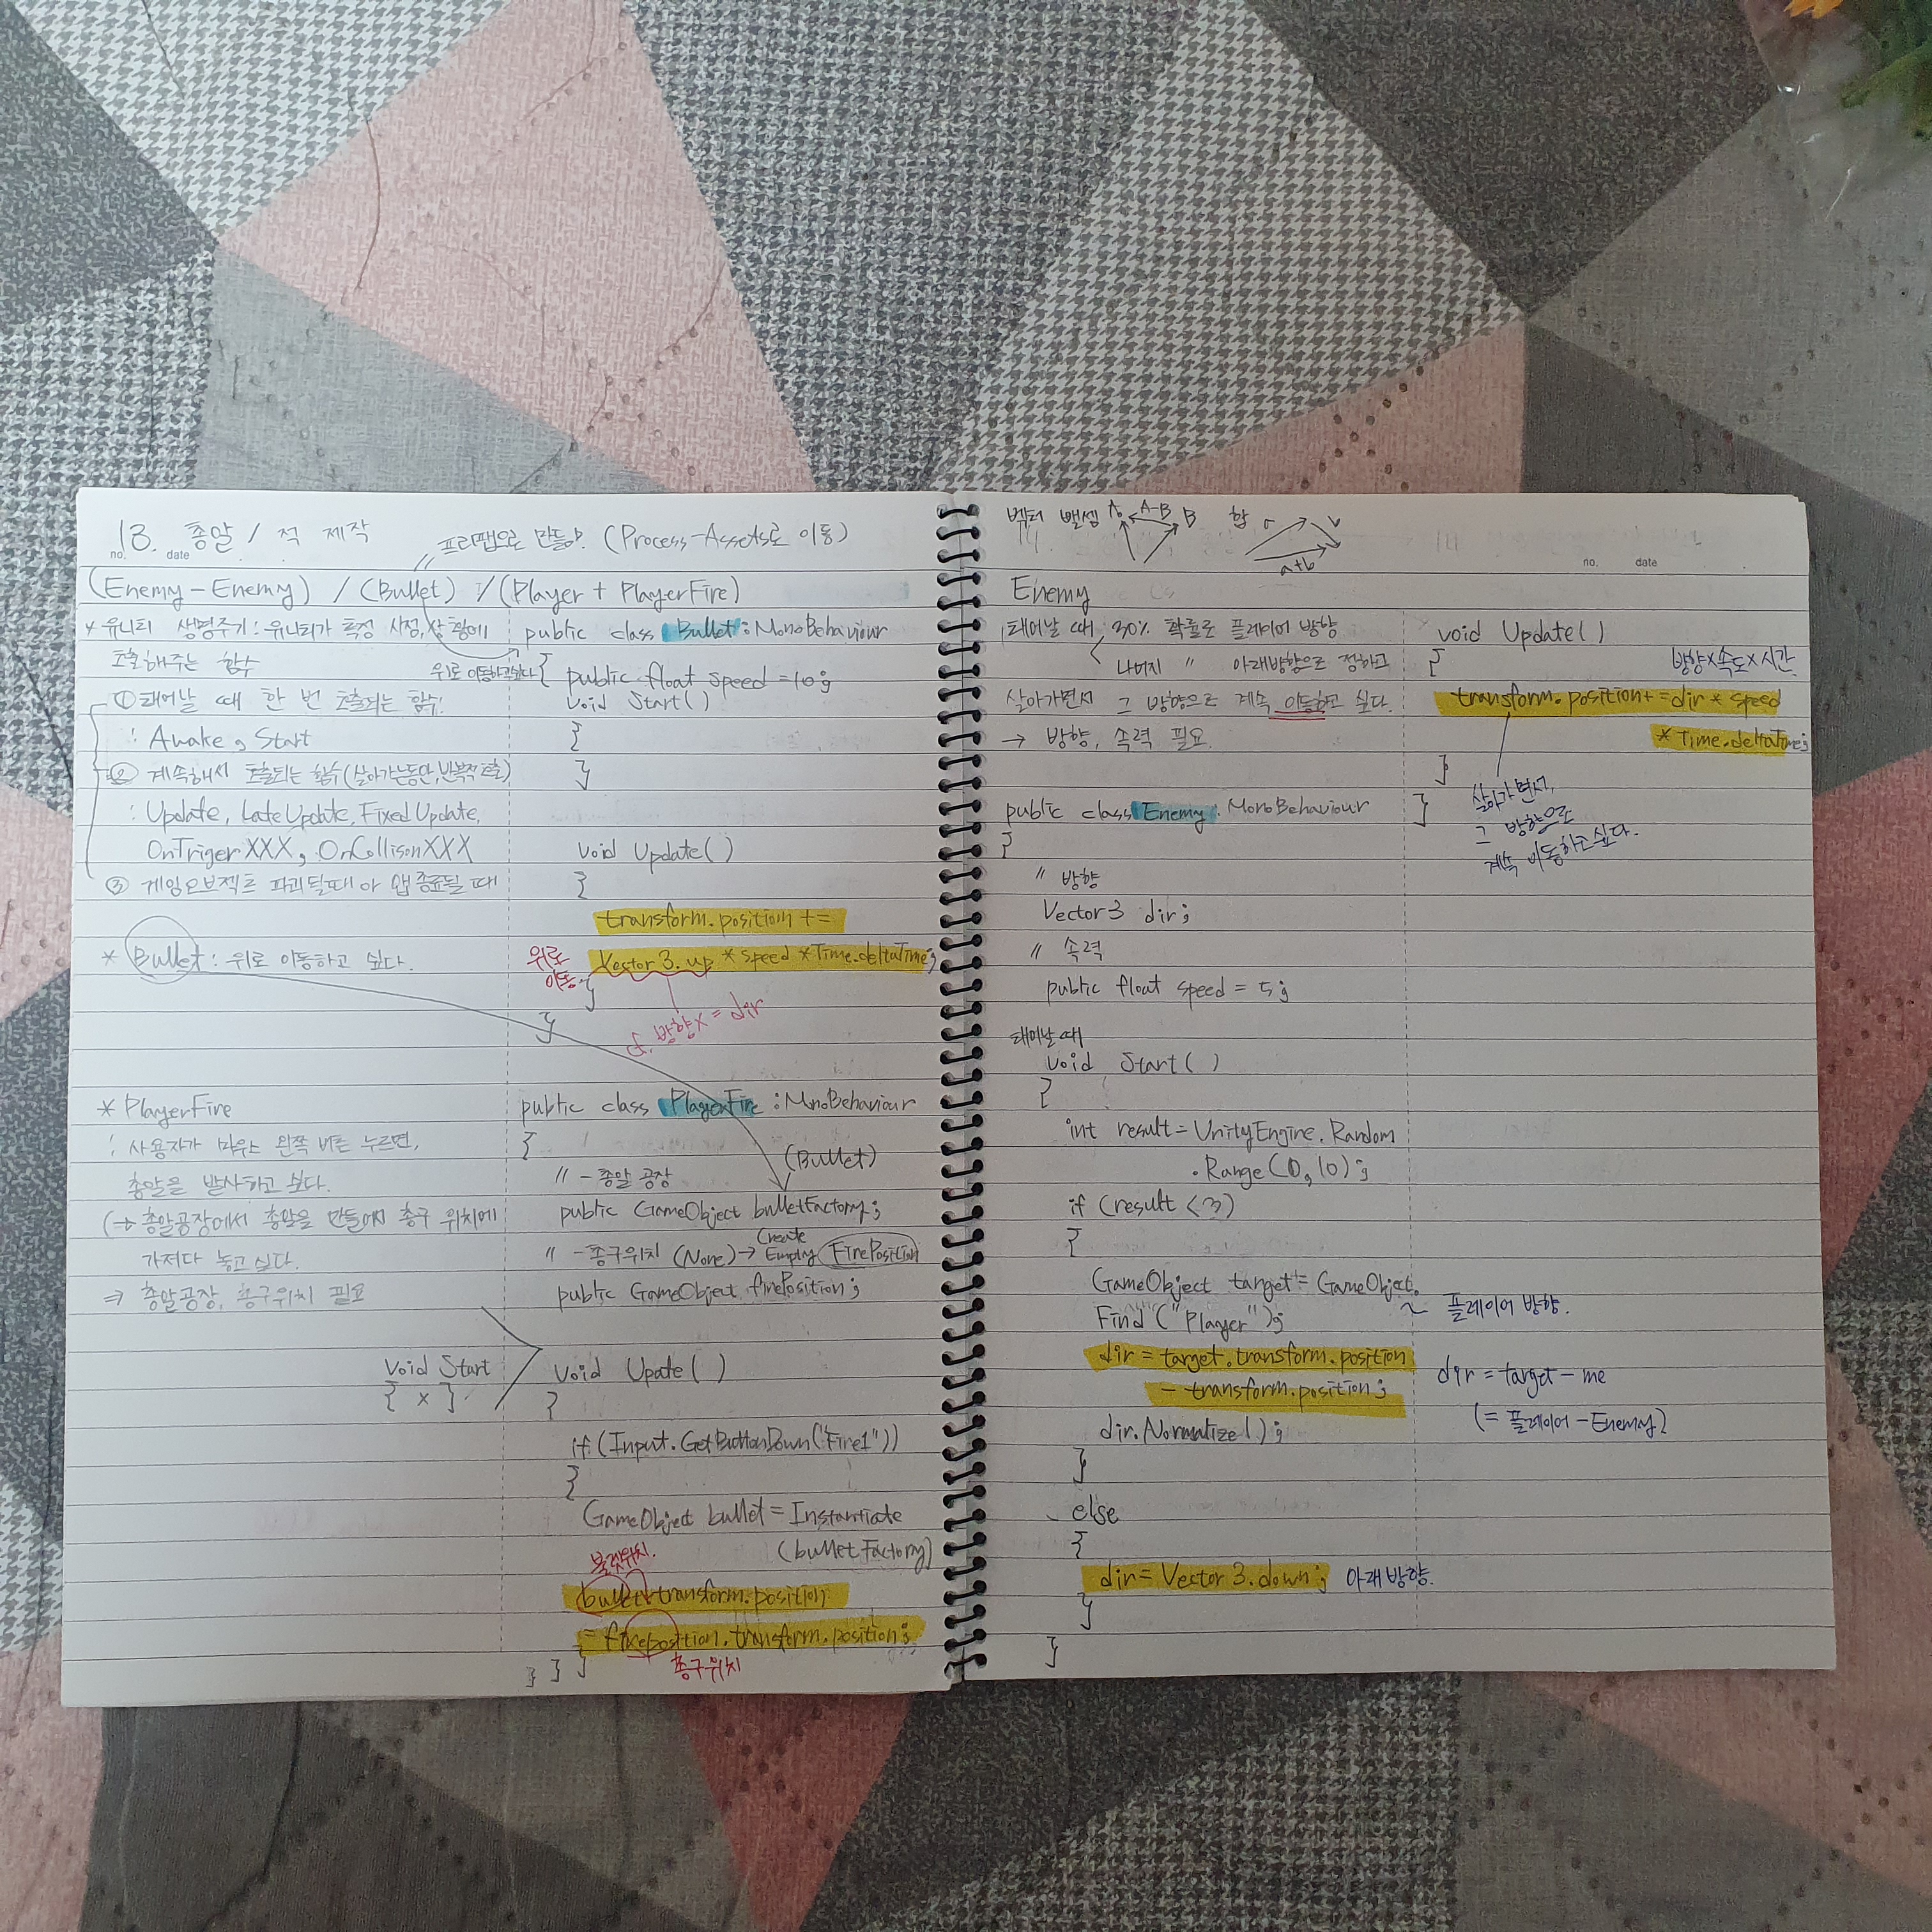 13. 총알 / 적 제작
no. date
프리팹으로 만듦! (Process-Assets로 이동)
(Enemy-Enemy) / (Bullet) / (Player + PlayerFire)
* 유니티 생명주기: 유니티가 특정 시점, 상황에
호출해주는 함수
① 태어날 때 한 번 호출되는 함수.
: Awake, Start
② 계속해서 호출되는 함수 (살아가는동안, 반복적 호출)
: Update, LateUpdate, FixedUpdate,
OnTrigerXXX, OnCollisonXXX
③ 게임오브젝트 파괴될때 아 앱 종료될 때
* Bullet : 위로 이동하고 싶다.
* PlayerFire
: 사용자가 마우스 왼쪽 버튼 누르면,
총알을 발사하고 싶다.
(→ 총알공장에서 총알을 만들어서 총구 위치에
가져다 놓고 싶다.
⇒ 총알공장, 총구위치 필요
void Start
{ x }
public class Bullet : MonoBehaviour
위로 이동하고싶다
{ public float speed = 10;
void Start()
{
}
void Update()
{
transform.position +=
위로 이동
Vector3.up * speed * Time.deltaTime;
}
cf. 방향x = dir
}
public class PlayerFire : MonoBehaviour
{
(Bullet)
// - 총알 공장
public GameObject bulletFactory;
// - 총구위치 (None) → Create Empty FirePosition
public GameObject firePosition;
void Upate()
{
if (Input.GetButtonDown("Fire1"))
{
GameObject bullet = Instantiate
(bulletFactory)
불렛위치.
bullet.transform.position
= fireposition.transform.position;
총구위치
} } }
벡터 뺄셈 A A-B B 합 a b a+b
no. date
Enemy
태어날 때 30% 확률로 플레이어 방향
나머지 " 아래방향으로 정하고
살아가면서 그 방향으로 계속 이동하고 싶다.
→ 방향, 속력 필요.
public class Enemy : MonoBehaviour
{
// 방향
Vector3 dir;
// 속력
public float speed = 5;
태어날 때
void Start()
{
int result = UnityEngine.Random
.Range(0, 10);
if (result < 3)
{
GameObject target = GameObject.
Find("Player");
플레이어 방향.
dir = target.transform.position
- transform.position;
dir = target - me
(= 플레이어 - Enemy)
dir.Normalize();
}
else
{
dir = Vector3.down; 아래 방향.
}
}
void Update()
{
방향x속도x시간
transform.position += dir * speed
* Time.deltaTime;
}
}
살아가면서,
그 방향으로
계속 이동하고 싶다.